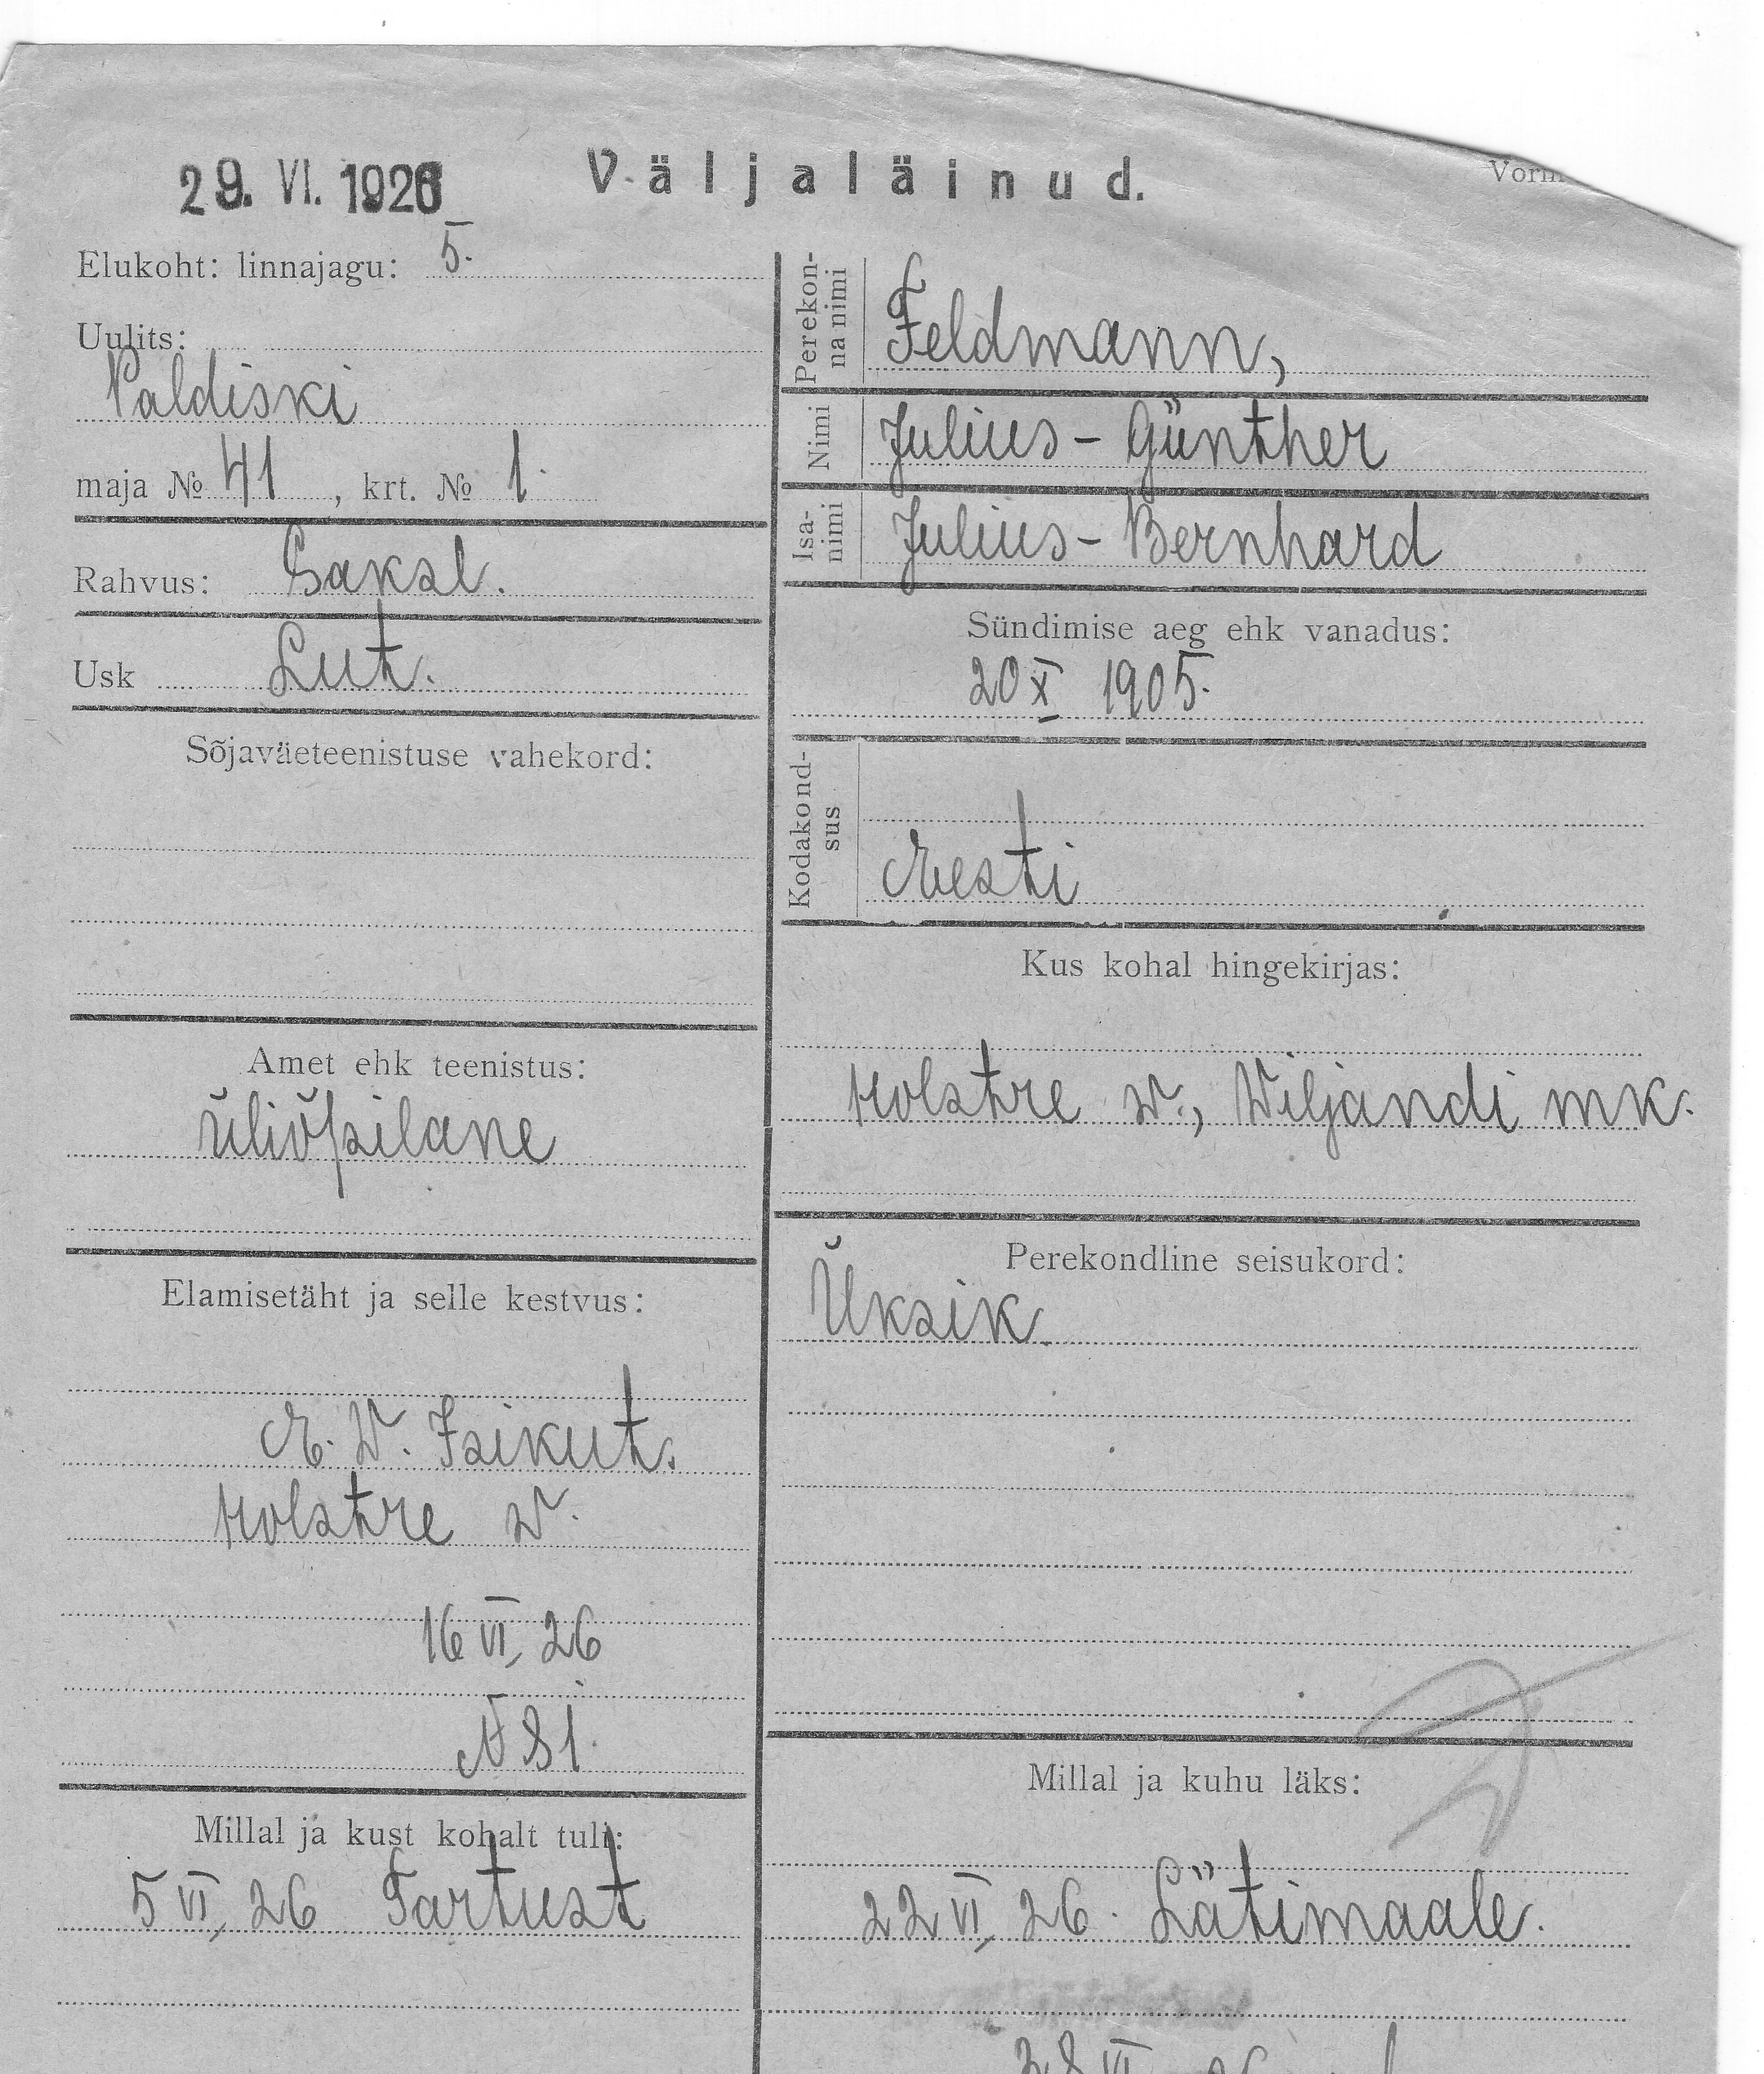 29. VI. 1926
Väljaläinud.
Elukoht: linnajagu: 5.
Uulits:
Paldiski
maja № 41, krt. № 1.
Rahvus: Saksl.
Usk Lut.
Sõjaväeteenistuse vahekord:
Amet ehk teenistus:
üliõpilane
Elamisetäht ja selle kestvus:
E. W. Isikut.
Holstre w.
16 VI 26
N 81.
Millal ja kust kohalt tuli:
5 VI, 26 Tartust
Perekonnanimi
Feldmann,
Nimi
Julius-Günther
Isanimi
Julius-Bernhard
Sündimise aeg ehk vanadus:
20 X 1905.
Kodakondsus
Eesti
Kus kohal hingekirjas:
Holstre w., Wiljandi mk.
Perekondline seisukord:
Üksik
Millal ja kuhu läks:
22 VI, 26. Lätimaale.